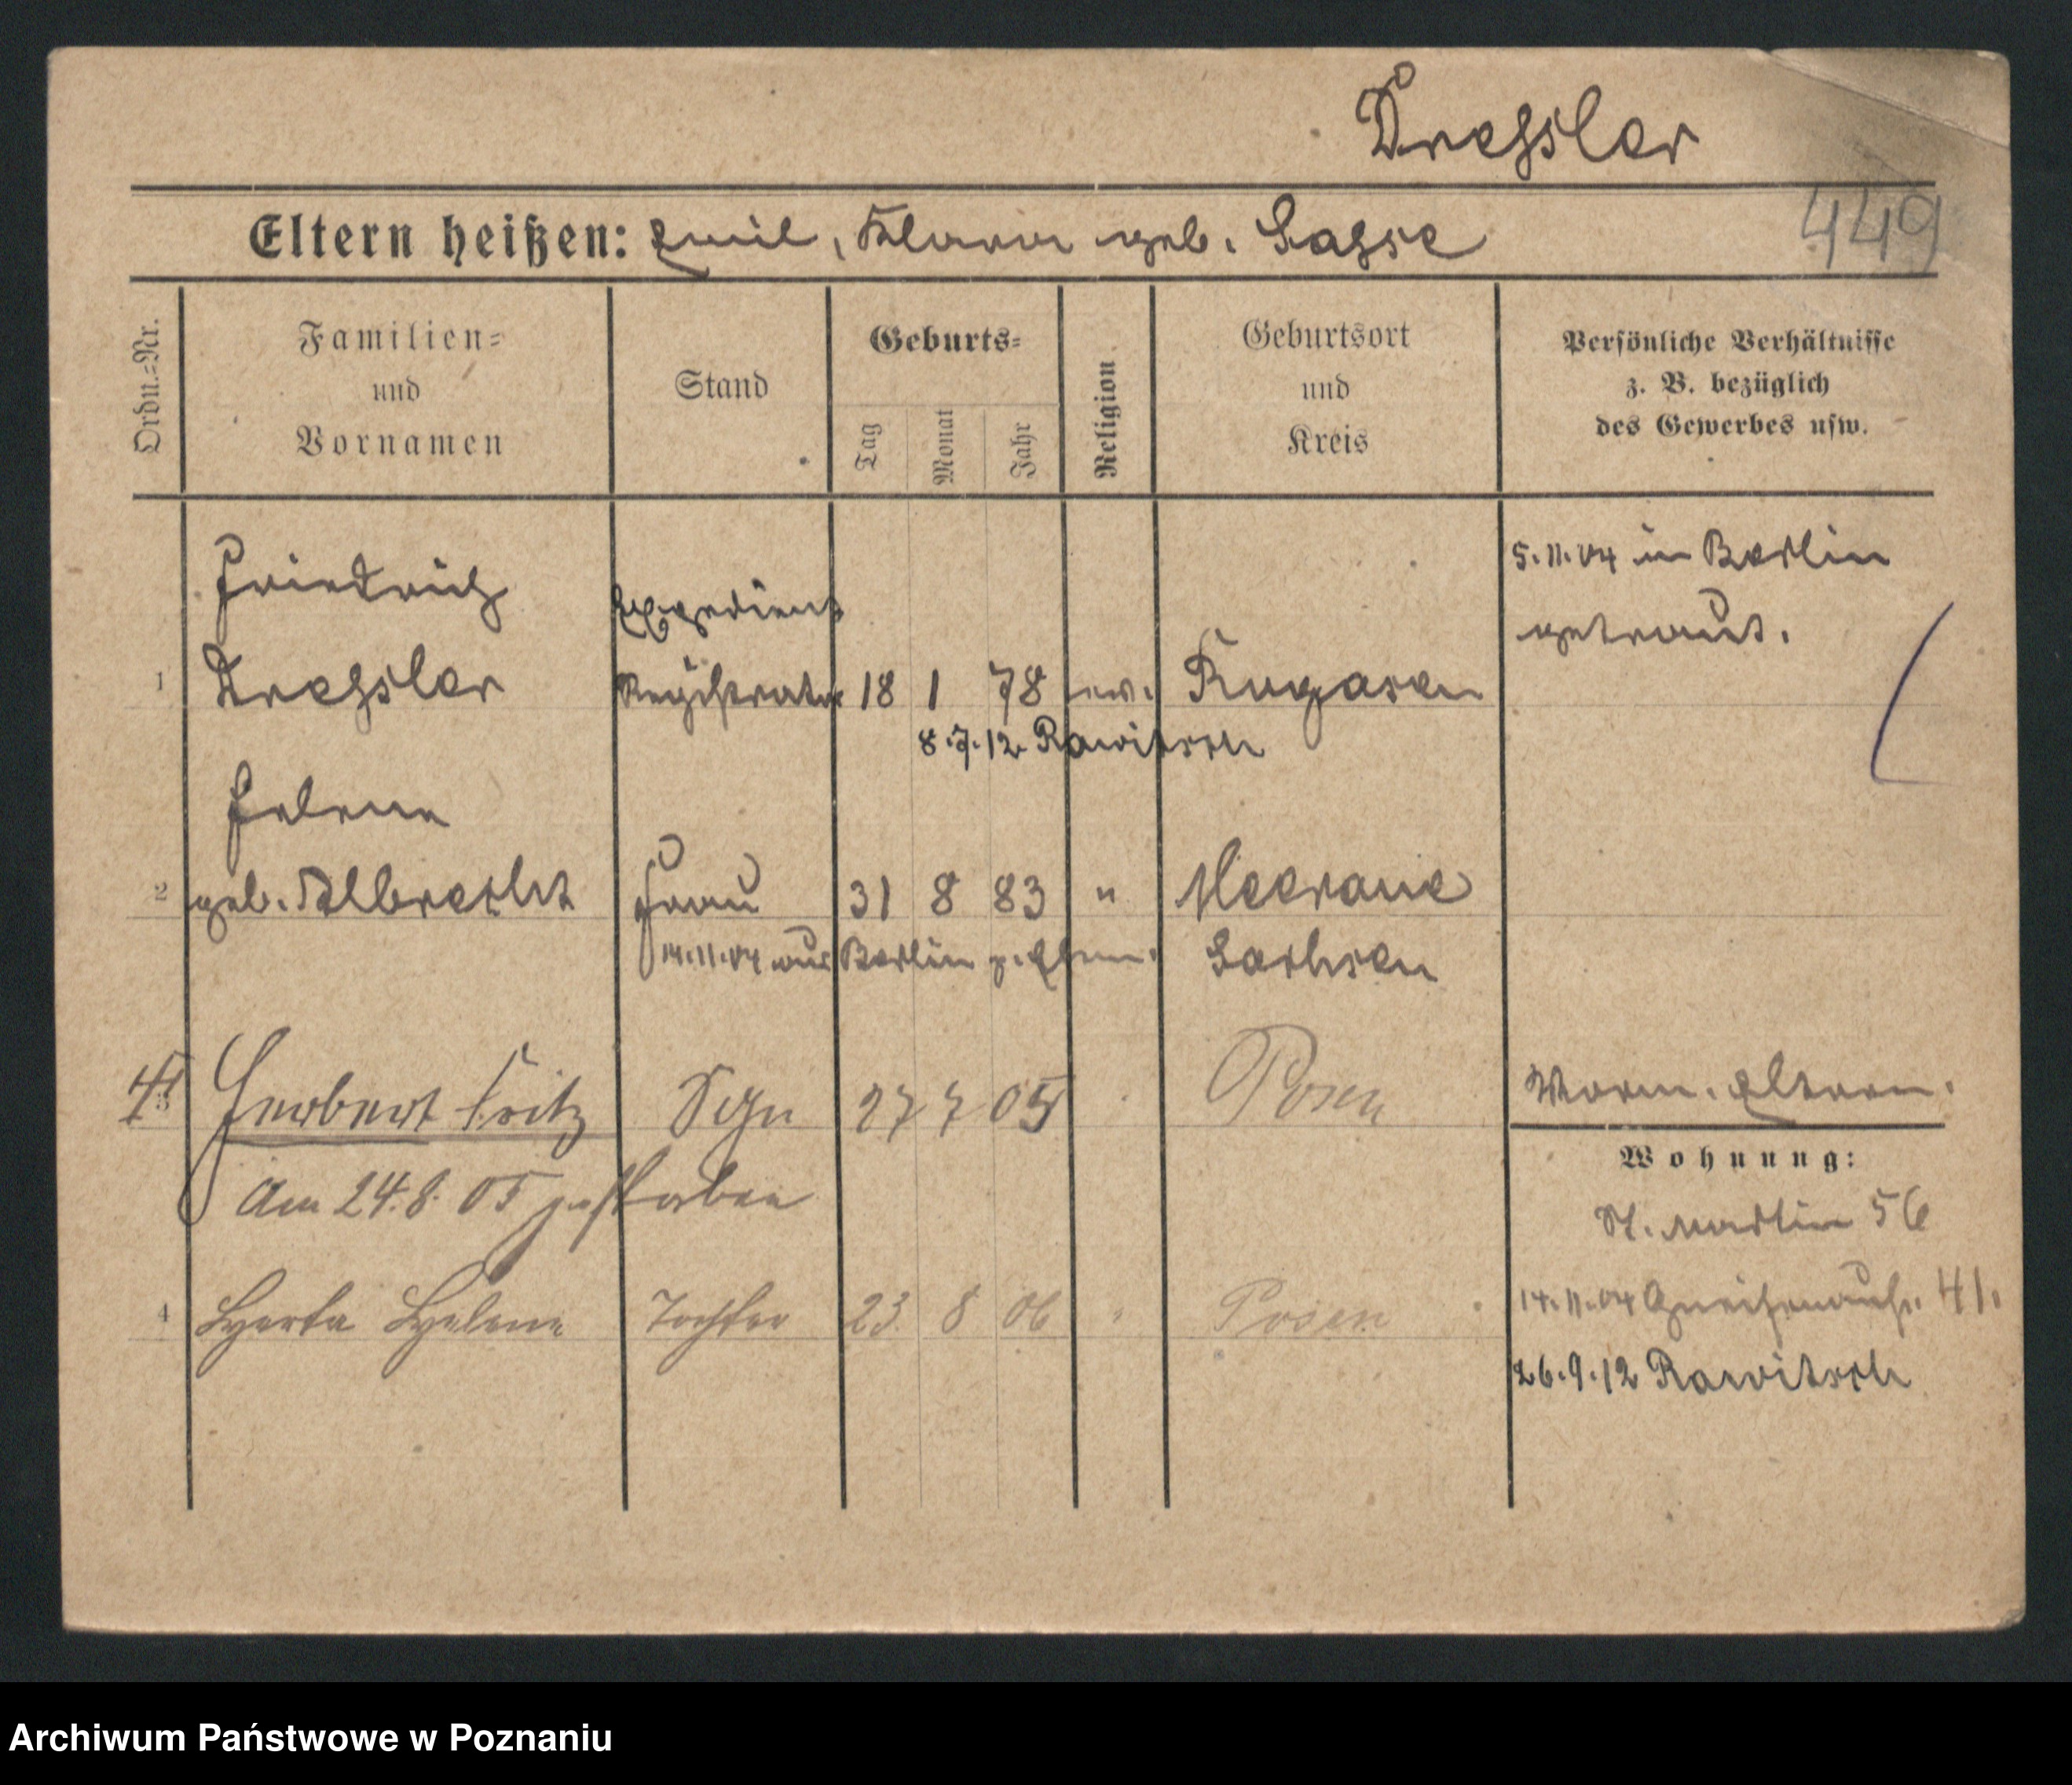 Dressler
449
Eltern heißen: Emil, Klara geb. Sasse
Ordn.-Nr.
Familien-
und
Vornamen
Stand
Geburts-
Tag
Monat
Jahr
Religion
Geburtsort
und
Kreis
Persönliche Verhältnisse
z. B. bezüglich
des Gewerbes usw.
5.11.04 in Berlin
getraut.
Friedrich
Expedient
1 Dressler Registrator 18 1 78 ev. Rogasen
8.7.12 Rawitsch
Helene
2 geb. Albrecht Frau 31 8 83 " Meerane
14.11.04 aus Berlin z. Ehem. Sachsen
3 Herbert Fritz Sohn 27 7 05 Posen
Am 24.8.05 gestorben
4 Herta Helene Tochter 23 8 06 " Posen
Worm. Eltern.
Wohnung:
St. Martin 56
14.11.04 Gneisenaustr. 41.
26.9.12 Rawitsch
Archiwum Państwowe w Poznaniu